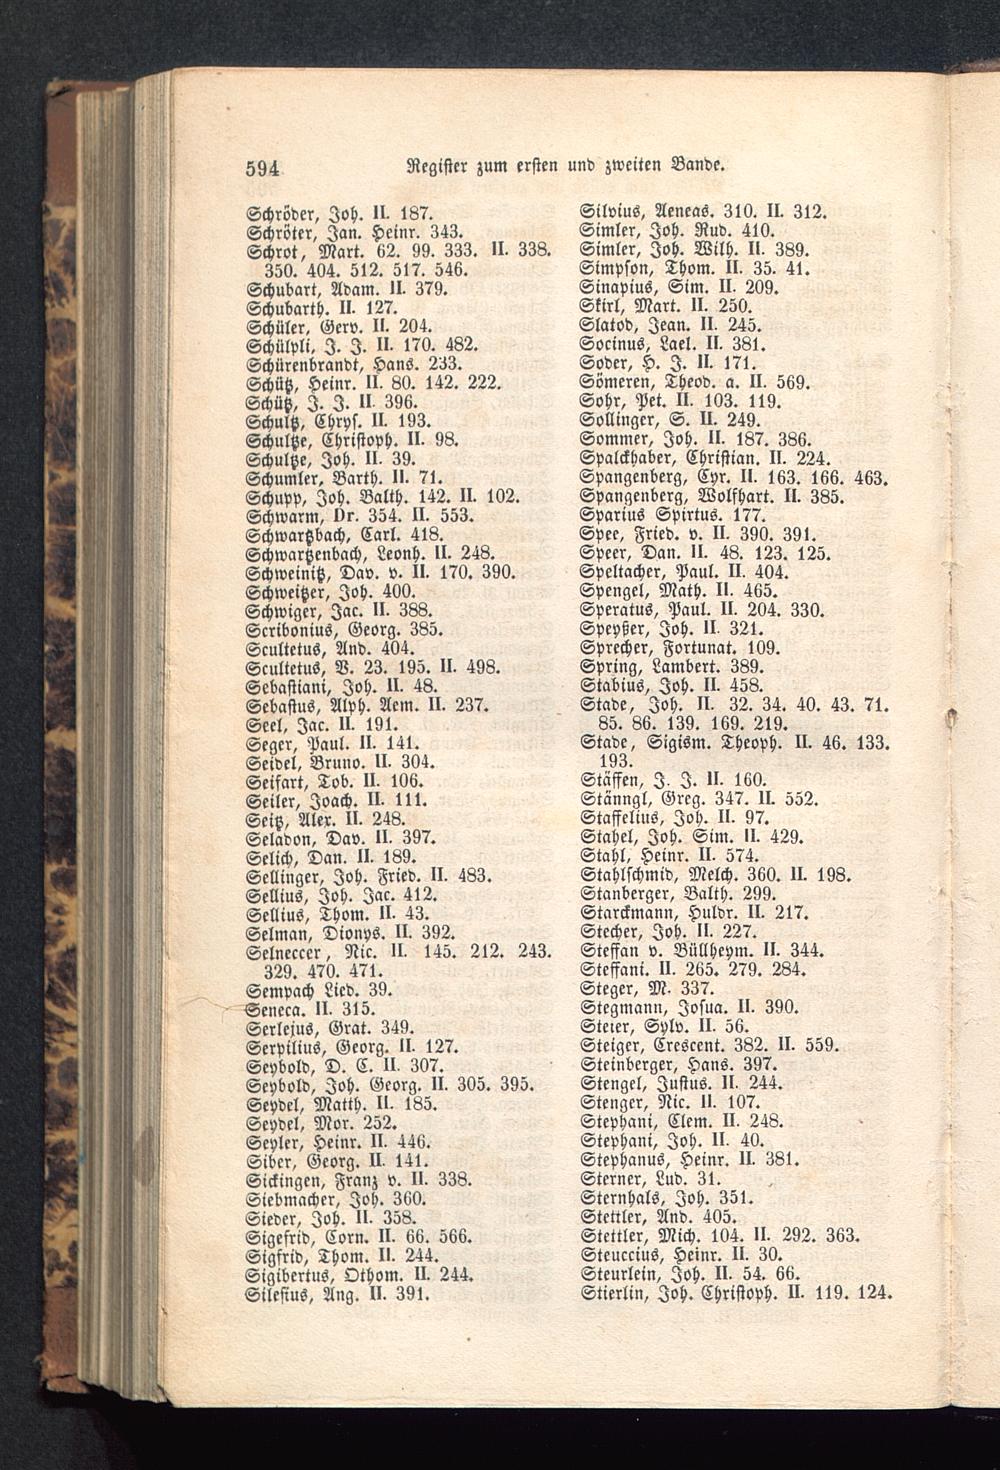 594 Register zum ersten und zweiten Bande.
Schröder, Joh. II. 187.
Schröter, Jan. Heinr. 343.
Schrot, Mart. 62. 99. 333. II. 338.
350. 404. 512. 517. 546.
Schubart, Adam. II. 379.
Schubarth. II. 127.
Schüler, Gerv. II. 204.
Schülpli, J. J. II. 170. 482.
Schürenbrandt, Hans. 233.
Schütz, Heinr. II. 80. 142. 222.
Schütz, J. J. II. 396.
Schultz, Chrys. II. 193.
Schultze, Christoph. II. 98.
Schultze, Joh. II. 39.
Schumler, Barth. II. 71.
Schupp, Joh. Balth. 142. II. 102.
Schwarm, Dr. 354. II. 553.
Schwartzbach, Carl. 418.
Schwartzenbach, Leonh. II. 248.
Schweinitz, Dav. v. II. 170. 390.
Schweitzer, Joh. 400.
Schwiger, Jac. II. 388.
Scribonius, Georg. 385.
Scultetus, And. 404.
Scultetus, B. 23. 195. II. 498.
Sebastiani, Joh. II. 48.
Sebastus, Alph. Aem. II. 237.
Seel, Jac. II. 191.
Seger, Paul. II. 141.
Seidel, Bruno. II. 304.
Seifart, Tob. II. 106.
Seiler, Joach. II. 111.
Seitz, Alex. II. 248.
Seladon, Dav. II. 397.
Selich, Dan. II. 189.
Sellinger, Joh. Fried. II. 483.
Sellius, Joh. Jac. 412.
Sellius, Thom. II. 43.
Selman, Dionys. II. 392.
Selneccer, Nic. II. 145. 212. 243.
329. 470. 471.
Sempach Lied. 39.
Seneca. II. 315.
Serlejus, Grat. 349.
Serpilius, Georg. II. 127.
Seybold, D. C. II. 307.
Seybold, Joh. Georg. II. 305. 395.
Seydel, Matth. II. 185.
Seydel, Mor. 252.
Seyler, Heinr. II. 446.
Siber, Georg. II. 141.
Sickingen, Franz v. II. 338.
Siebmacher, Joh. 360.
Sieder, Joh. II. 358.
Sigefrid, Corn. II. 66. 566.
Sigfrid, Thom. II. 244.
Sigibertus, Othom. II. 244.
Silesius, Ang. II. 391.
Silvius, Aeneas. 310. II. 312.
Simler, Joh. Rud. 410.
Simler, Joh. Wilh. II. 389.
Simpson, Thom. II. 35. 41.
Sinapius, Sim. II. 209.
Skirl, Mart. II. 250.
Slatod, Jean. II. 245.
Socinus, Lael. II. 381.
Soder, H. J. II. 171.
Sömeren, Theod. a. II. 569.
Sohr, Pet. II. 103. 119.
Sollinger, S. II. 249.
Sommer, Joh. II. 187. 386.
Spalckhaber, Christian. II. 224.
Spangenberg, Cyr. II. 163. 166. 463.
Spangenberg, Wolfhart. II. 385.
Sparius Spirtus. 177.
Spee, Fried. v. II. 390. 391.
Speer, Dan. II. 48. 123. 125.
Speltacher, Paul. II. 404.
Spengel, Math. II. 465.
Speratus, Paul. II. 204. 330.
Speyßer, Joh. II. 321.
Sprecher, Fortunat. 109.
Spring, Lambert. 389.
Stabius, Joh. II. 458.
Stade, Joh. II. 32. 34. 40. 43. 71.
85. 86. 139. 169. 219.
Stade, Sigism. Theoph. II. 46. 133.
193.
Stäffen, J. J. II. 160.
Stänngl, Greg. 347. II. 552.
Staffelius, Joh. II. 97.
Stahel, Joh. Sim. II. 429.
Stahl, Heinr. II. 574.
Stahlschmid, Melch. 360. II. 198.
Stanberger, Balth. 299.
Starckmann, Huldr. II. 217.
Stecher, Joh. II. 227.
Steffan v. Büllheym. II. 344.
Steffani. II. 265. 279. 284.
Steger, M. 337.
Stegmann, Josua. II. 390.
Steier, Sylv. II. 56.
Steiger, Crescent. 382. II. 559.
Steinberger, Hans. 397.
Stengel, Justus. II. 244.
Stenger, Nic. II. 107.
Stephani, Clem. II. 248.
Stephani, Joh. II. 40.
Stephanus, Heinr. II. 381.
Sterner, Lud. 31.
Sternhals, Joh. 351.
Stettler, And. 405.
Stettler, Mich. 104. II. 292. 363.
Steuccius, Heinr. II. 30.
Steurlein, Joh. II. 54. 66.
Stierlin, Joh. Christoph. II. 119. 124.